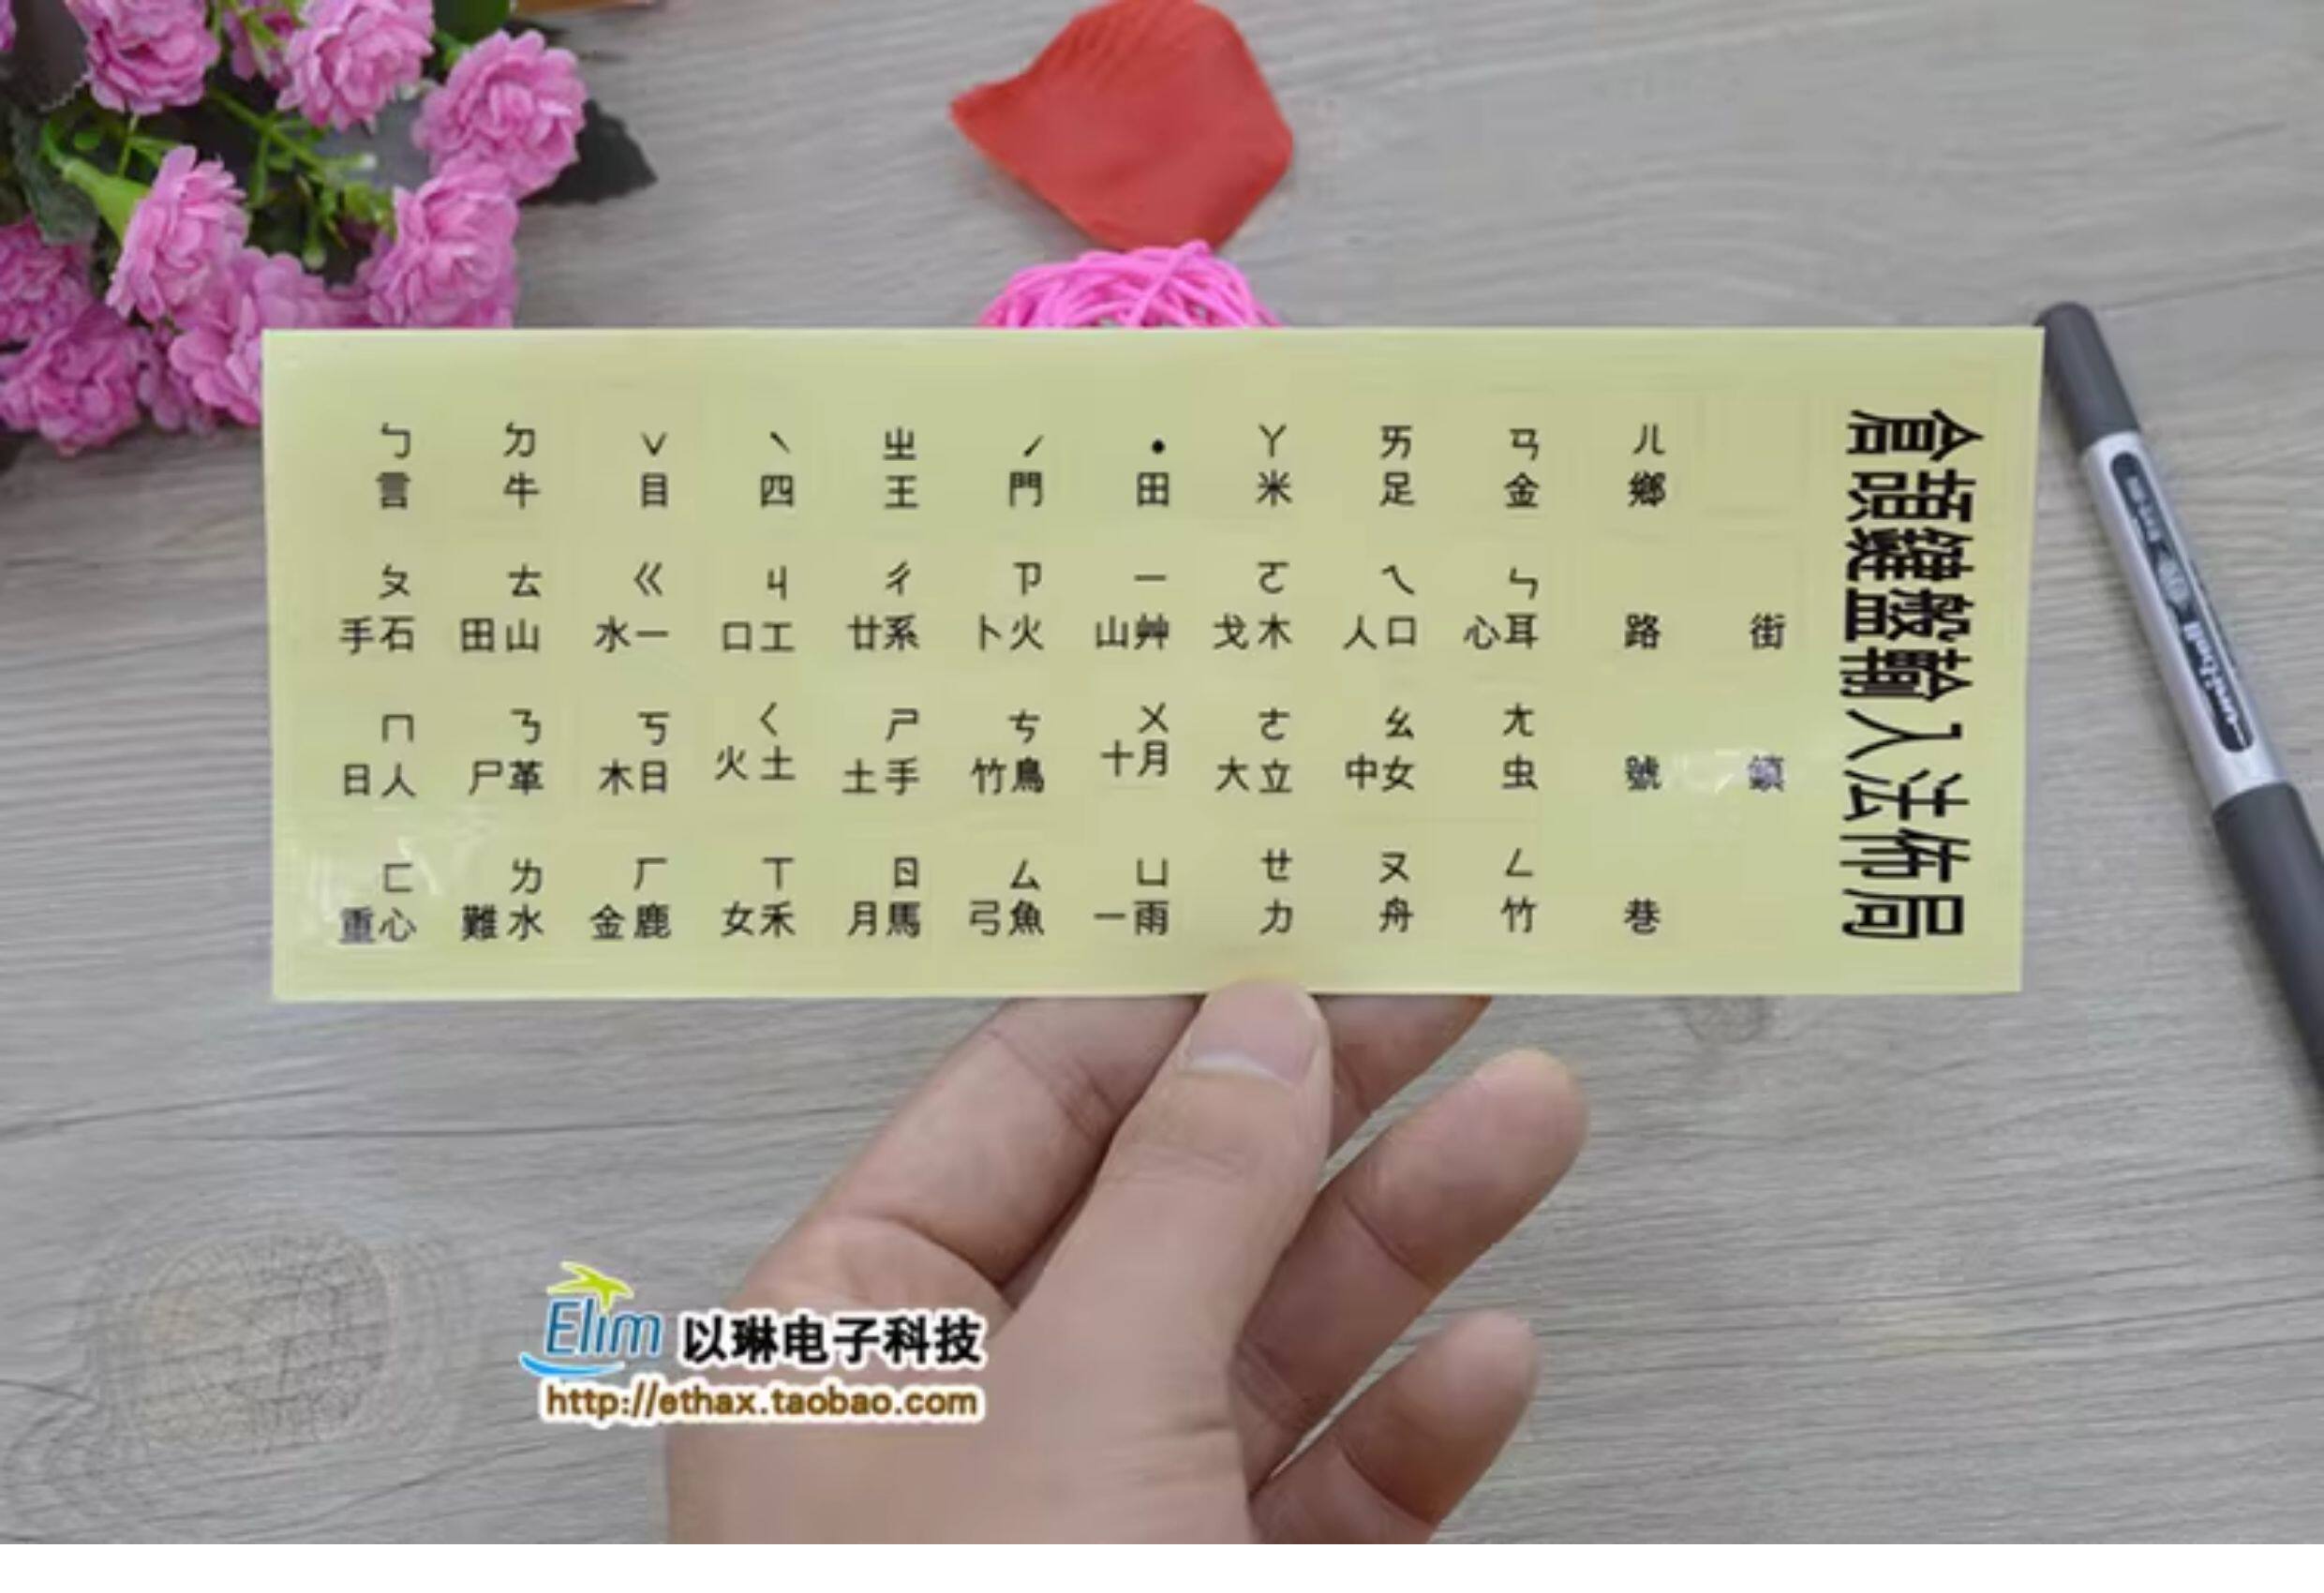 ㄅ ㄉ ˇ ˋ ㄓ ˊ ˙ ㄚ ㄞ ㄢ ㄦ
言 牛 目 四 王 門 田 米 足 金 鄉
ㄆ ㄊ ㄍ ㄐ ㄔ ㄗ ㄧ ㄛ ㄟ ㄣ
手石 田山 水一 口工 廿系 卜火 山艸 戈木 人口 心耳 路 街
ㄇ ㄋ ㄎ ㄑ ㄕ ㄘ ㄨ ㄜ ㄠ ㄤ
日人 尸革 木日 火土 土手 竹鳥 十月 大立 中女 虫 號 鎮
ㄈ ㄌ ㄏ ㄒ ㄖ ㄙ ㄩ ㄝ ㄡ ㄥ
重心 難水 金鹿 女禾 月馬 弓魚 一雨 力 舟 竹 巷
倉頡鍵盤輸入法佈局
Elim 以琳电子科技
http://ethax.taobao.com